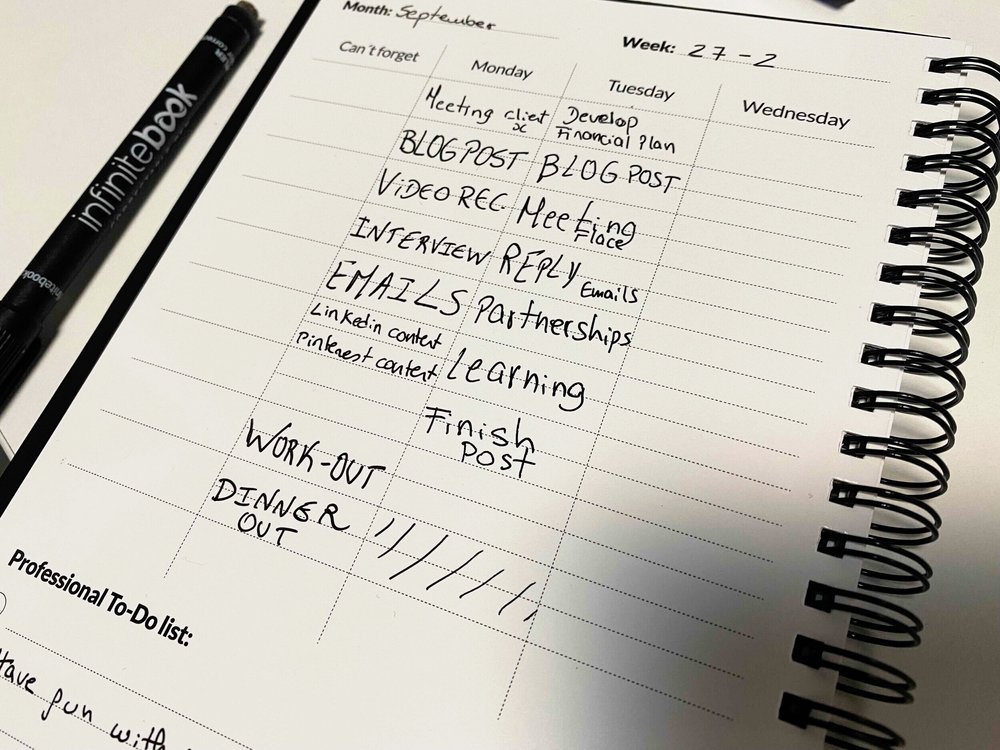 infinitebook
Month: September
Week: 27-2
Can't forget
Monday
Tuesday
Wednesday
Meeting cliet
x
BLOG POST
VIDEO REC
INTERVIEW
EMAILS
Linkedin content
Pinterest content
WORK-OUT
DINNER
OUT
Develop
Financial Plan
BLOG POST
Meeting
Flace
REPLY
Emails
Partnerships
Learning
Finish
POST
Professional To-Do list:
Have fun with